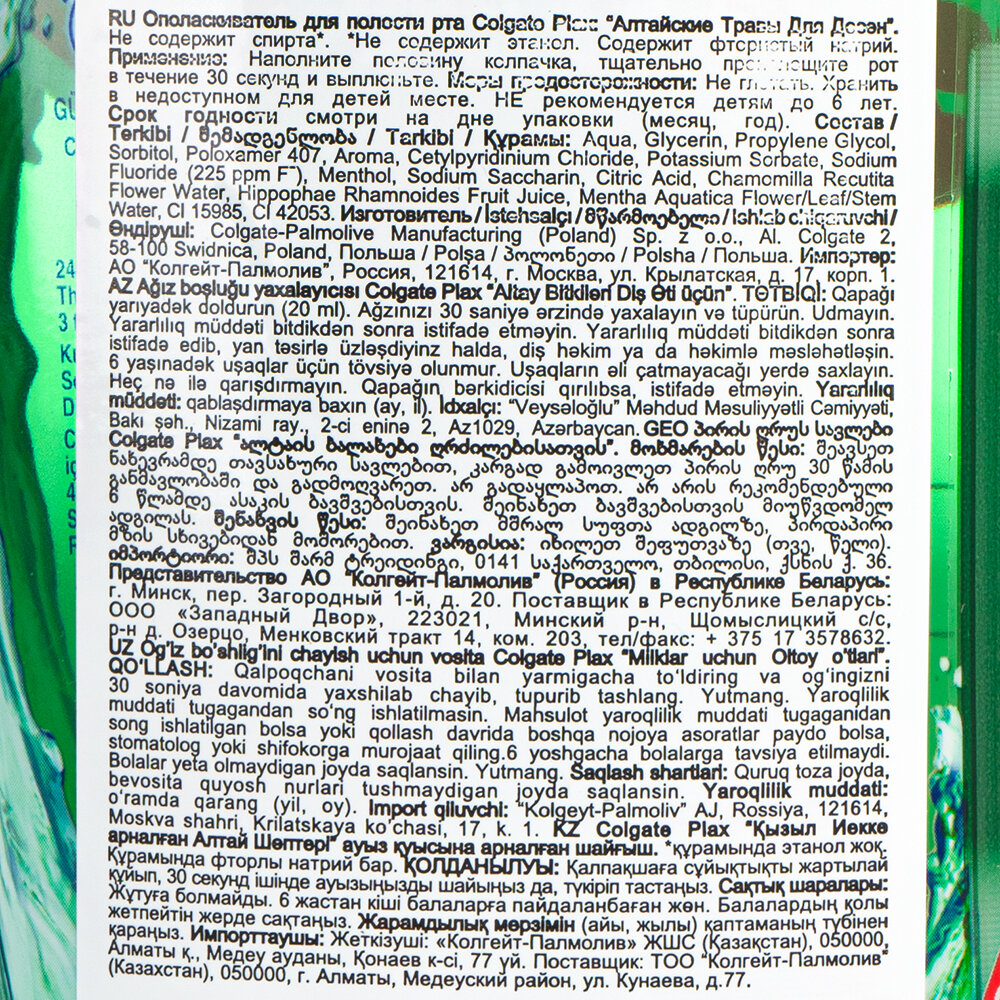 RU Ополаскиватель для полости рта Colgate Plax "Алтайские Травы Для Десен".
Не содержит спирта*. *Не содержит этанол. Содержит фтористый натрий.
Применение: Наполните половину колпачка, тщательно рот
в течение 30 секунд и выплюньте. Меры предосторожности: Не глотать. Хранить
в недоступном для детей месте. НЕ рекомендуется детям до 6 лет.
Срок годности смотри на дне упаковки (месяц, год). Состав /
Tərkibi / შემადგენლობა / Tarkibi / Құрамы: Aqua, Glycerin, Propylene Glycol,
Sorbitol, Poloxamer 407, Aroma, Cetylpyridinium Chloride, Potassium Sorbate, Sodium
Fluoride (225 ppm F⁻), Menthol, Sodium Saccharin, Citric Acid, Chamomilla Recutita
Flower Water, Hippophae Rhamnoides Fruit Juice, Mentha Aquatica Flower/Leaf/Stem
Water, CI 15985, CI 42053. Изготовитель / İstehsalçı / მწარმოებელი / Ishlab chiqaruvchi /
Өндіруші: Colgate-Palmolive Manufacturing (Poland) Sp. z o.o., Al. Colgate 2,
58-100 Swidnica, Poland, Польша / Polşa / პოლონეთი / Polsha / Польша. Импортер:
АО "Колгейт-Палмолив", Россия, 121614, г. Москва, ул. Крылатская, д. 17, корп. 1.
AZ Ağız boşluğu yaxalayıcısı Colgate Plax "Altay Bitkiləri Diş Əti üçün". TƏTBİQİ: Qapağı
yarıyadək doldurun (20 ml). Ağzınızı 30 saniyə ərzində yaxalayın və tüpürün. Udmayın.
Yararlılıq müddəti bitdikdən sonra istifadə etməyin. Yararlılıq müddəti bitdikdən sonra
istifadə edib, yan təsirlə üzləşdiyinz halda, diş həkim ya da həkimlə məsləhətləşin.
6 yaşınadək uşaqlar üçün tövsiyə olunmur. Uşaqların əli çatmayacağı yerdə saxlayın.
Heç nə ilə qarışdırmayın. Qapağın bərkidicisi qırılıbsa, istifadə etməyin. Yararlılıq
müddəti: qablaşdırmaya baxın (ay, il). İdxalçı: "Veysəloğlu" Məhdud Məsuliyyətli Cəmiyyəti,
Bakı şəh., Nizami ray., 2-ci eninə 2, Az1029, Azərbaycan. GEO პირის ღრუს სავლები
Colgate Plax "ალტაის ბალახები ღრძილებისათვის". მოხმარების წესი: შეავსეთ
ნახევრამდე თავსახური სავლებით, კარგად გამოივლეთ პირის ღრუ 30 წამის
განმავლობაში და გადმოღვარეთ. არ გადაყლაპოთ. არ არის რეკომენდებული
6 წლამდე ასაკის ბავშვებისთვის. შეინახეთ ბავშვებისთვის მიუწვდომელ
ადგილას. შენახვის წესი: შეინახეთ მშრალ სუფთა ადგილზე, პირდაპირი
მზის სხივებიდან მოშორებით. ვარგისია: იხილეთ შეფუთვაზე (თვე, წელი).
იმპორტიორი: შპს შარმ ტრეიდინგი, 0141 საქართველო, თბილისი, ქსნის ქ. 36.
Представительство АО "Колгейт-Палмолив" (Россия) в Республике Беларусь:
г. Минск, пер. Загородный 1-й, д. 20. Поставщик в Республике Беларусь:
ООО «Западный Двор», 223021, Минский р-н, Щомыслицкий с/с,
р-н д. Озерцо, Менковский тракт 14, ком. 203, тел/факс: + 375 17 3578632.
UZ Og'iz bo'shlig'ini chayish uchun vosita Colgate Plax "Milklar uchun Oltoy o'tlari".
QO'LLASH: Qalpoqchani vosita bilan yarmigacha to'ldiring va og'ingizni
30 soniya davomida yaxshilab chayib, tupurib tashlang. Yutmang. Yaroqlilik
muddati tugagandan so'ng ishlatilmasin. Mahsulot yaroqlilik muddati tugaganidan
song ishlatilgan bolsa yoki qollash davrida boshqa nojoya asoratlar paydo bolsa,
stomatolog yoki shifokorga murojaat qiling.6 yoshgacha bolalarga tavsiya etilmaydi.
Bolalar yeta olmaydigan joyda saqlansin. Yutmang. Saqlash shartlari: Quruq toza joyda,
bevosita quyosh nurlari tushmaydigan joyda saqlansin. Yaroqlilik muddati:
o'ramda qarang (yil, oy). Import qiluvchi: "Kolgeyt-Palmoliv" AJ, Rossiya, 121614,
Moskva shahri, Krilatskaya ko'chasi, 17, k. 1. KZ Colgate Plax "Қызыл Иекке
арналған Алтай Шөптері" ауыз қуысына арналған шайғыш. *құрамында этанол жоқ.
Құрамында фторлы натрий бар. ҚОЛДАНЫЛУЫ: Қалпақшаға сұйықтықты жартылай
құйып, 30 секунд ішінде ауызыңызды шайыңыз да, түкіріп тастаңыз. Сақтық шаралары:
Жұтуға болмайды. 6 жастан кіші балаларға пайдаланбаған жөн. Балалардың қолы
жетпейтін жерде сақтаңыз. Жарамдылық мерзімін (айы, жылы) қаптаманың түбінен
қараңыз. Импорттаушы: Жеткізуші: «Колгейт-Палмолив» ЖШС (Қазақстан), 050000,
Алматы қ., Медеу ауданы, Қонаев к-сі, 77 үй. Поставщик: ТОО "Колгейт-Палмолив"
(Казахстан), 050000, г. Алматы, Медеуский район, ул. Кунаева, д.77.